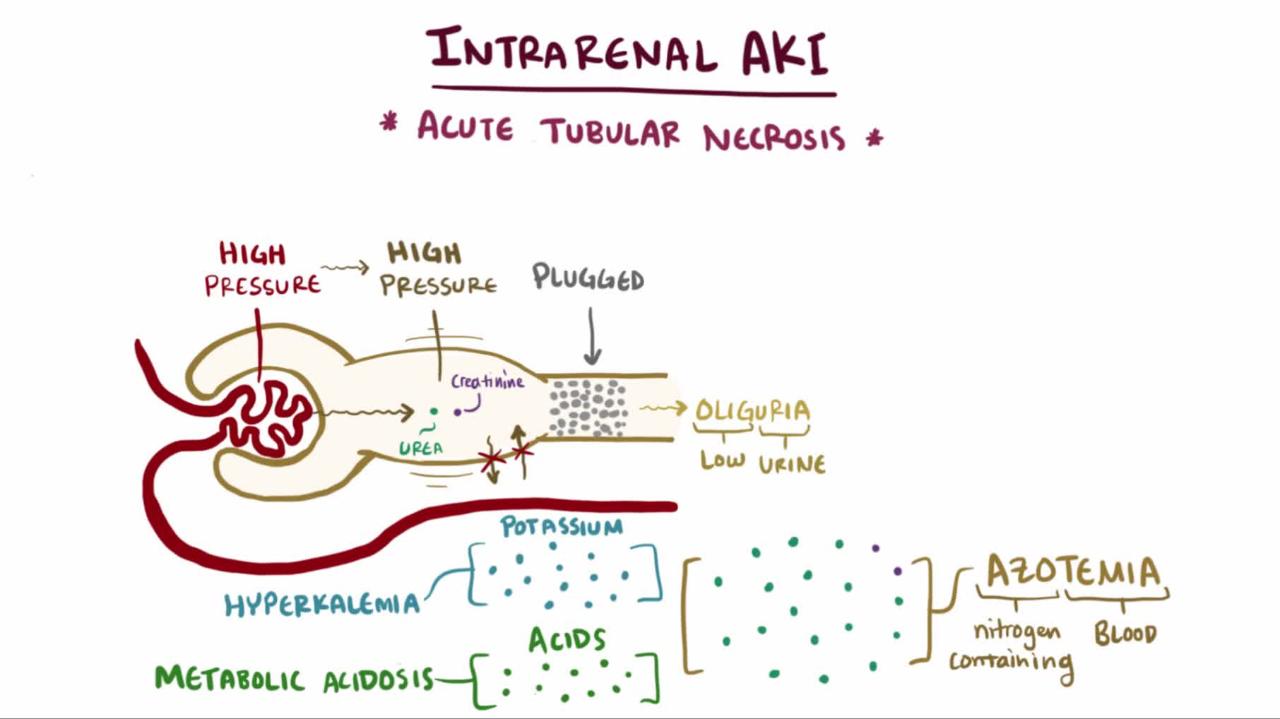 INTRARENAL AKI
* ACUTE TUBULAR NECROSIS *
HIGH
PRESSURE
HIGH
PRESSURE
PLUGGED
Creatinine
UREA
OLIGURIA
LOW URINE
POTASSIUM
HYPERKALEMIA
ACIDS
METABOLIC ACIDOSIS
AZOTEMIA
nitrogen
containing
BLOOD